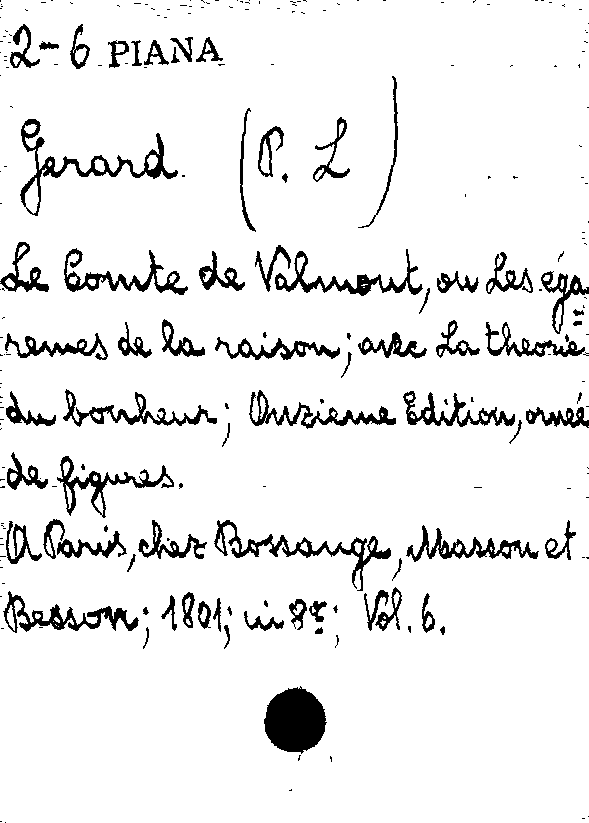 2-6 PIANA
Gerard (P. L)
Le Comte de Valmont, ou Les éga=
remes de la raison; avec La theorie
du bonheur; Onzieme Edition, orneé
de figures.
A Paris, chez Bossange, Masson et
Besson; 1801; in 8º; Vol. 6.